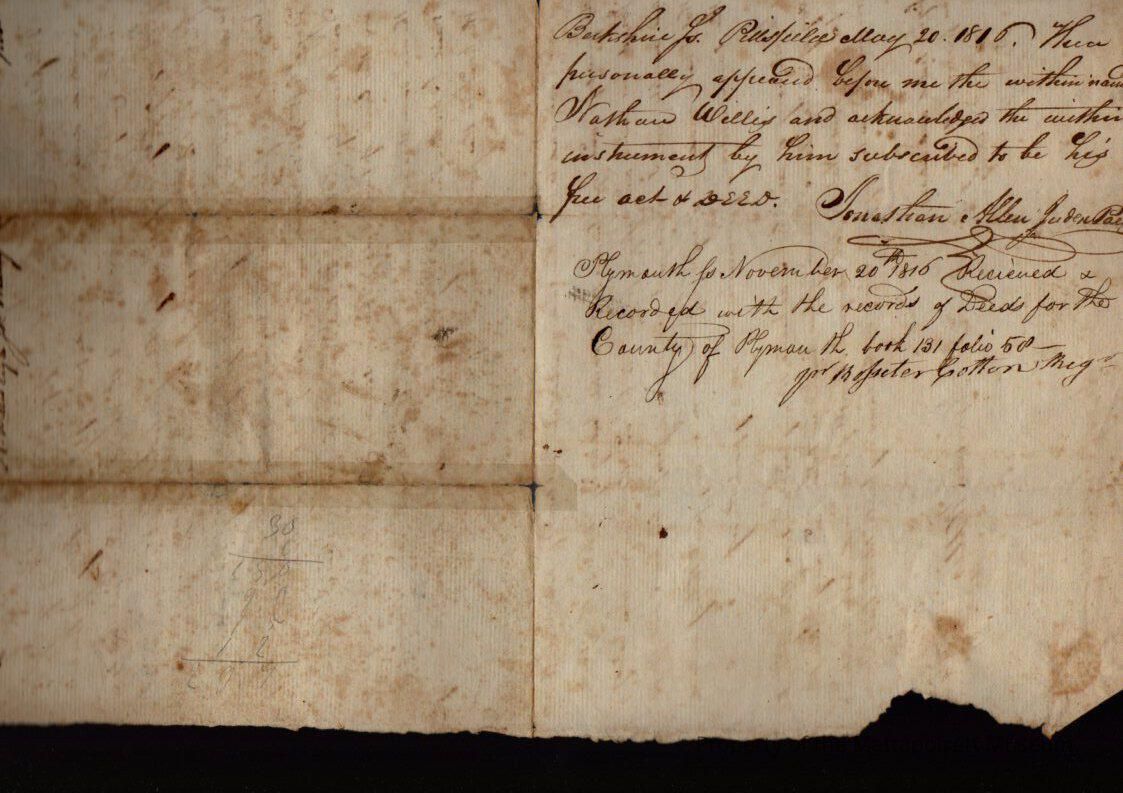 Berkshire ss. Pittsfield May 20. 1816. Then
personally appeared before me the within nam
Nathan Willis and acknowledged the within
instrument by him subscribed to be his
free act & DEED.
Jonathan Allen Jus Pac
Plymouth ss November 20th 1816 Recieved &
Recorded with the records of Deeds for the
County of Plymouth book 131 folio 58
pr Rosseter Cotton Regr
30
2
Property of the Mattapoisett Museum